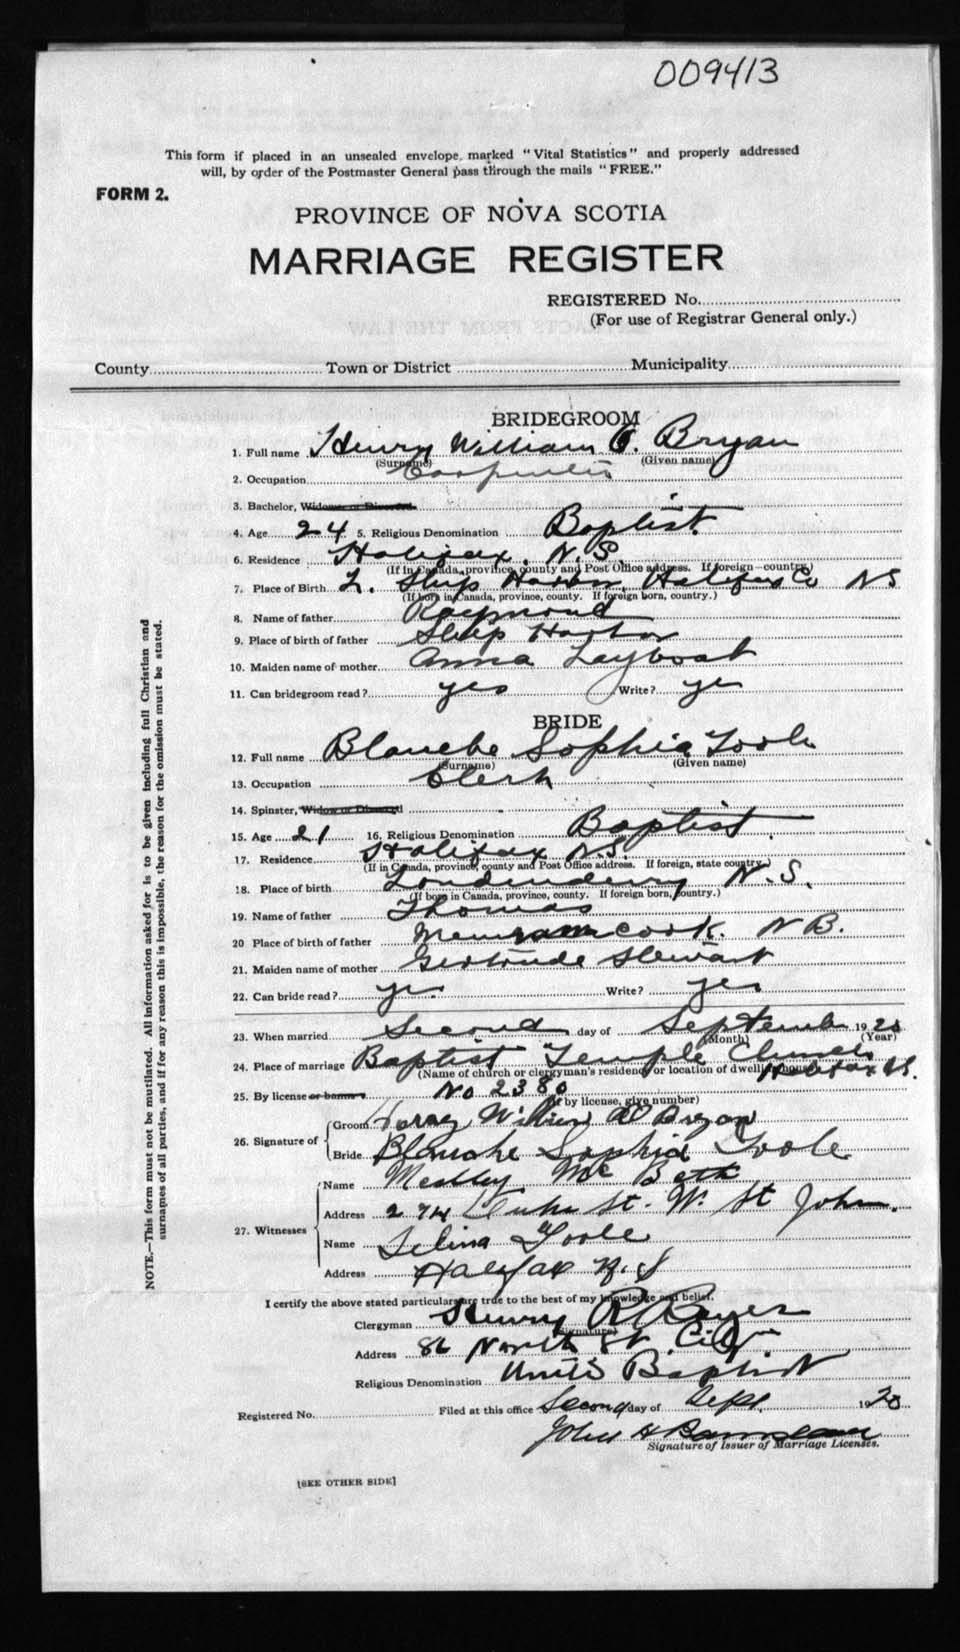 009413
This form if placed in an unsealed envelope, marked "Vital Statistics" and properly addressed
will, by order of the Postmaster General pass through the mails "FREE."
FORM 2.
PROVINCE OF NOVA SCOTIA
MARRIAGE REGISTER
REGISTERED No.
(For use of Registrar General only.)
County Town or District Municipality
BRIDEGROOM
1. Full name Henry William O. Bryan
(Surname) (Given name)
2. Occupation Carpenter
3. Bachelor, Widower or Divorced
4. Age 24 5. Religious Denomination Baptist
6. Residence Halifax. N.S.
(If in Canada, province, county and Post Office address. If foreign—country.)
7. Place of Birth Ship Harbor, Halifax Co NS
(If born in Canada, province, county. If foreign born, country.)
8. Name of father Raymond
9. Place of birth of father Ship Harbor
10. Maiden name of mother Anna Layboat
11. Can bridegroom read? yes Write? yes
BRIDE
12. Full name Blanche Sophia Toole
(Surname) (Given name)
13. Occupation Clerk
14. Spinster, Widow or Divorced
15. Age 21 16. Religious Denomination Baptist.
17. Residence Halifax N.S.
(If in Canada, province, county and Post Office address. If foreign, state country.)
18. Place of birth Londonderry N.S.
(If born in Canada, province, county. If foreign born, country.)
19. Name of father Thomas
20 Place of birth of father Memramcook. N B.
21. Maiden name of mother Gertrude Stewart
22. Can bride read? yes Write? yes
23. When married Second day of September 1920
(Month) (Year)
24. Place of marriage Baptist Temple Church
(Name of church or clergyman's residence or location of dwelling house) Halifax N.S.
25. By license or banns No 2380
(If by license, give number)
26. Signature of Groom Henry William O Bryan
Bride Blanche Sophia Toole
27. Witnesses Name Medley Mc Beth
Address 274 St. W. St John.
Name Selina Toole
Address Halifax N.S
I certify the above stated particulars are true to the best of my knowledge and belief.
Clergyman Henry R Boyer
(Signature)
Address 86 North St. City
Religious Denomination United Baptist
Registered No. Filed at this office Second day of Sept. 1920
John H
Signature of Issuer of Marriage Licenses.
[SEE OTHER SIDE]
NOTE.—This form must not be mutilated. All information asked for is to be given including full Christian and
surnames of all parties, and if for any reason this is impossible, the reason for the omission must be stated.